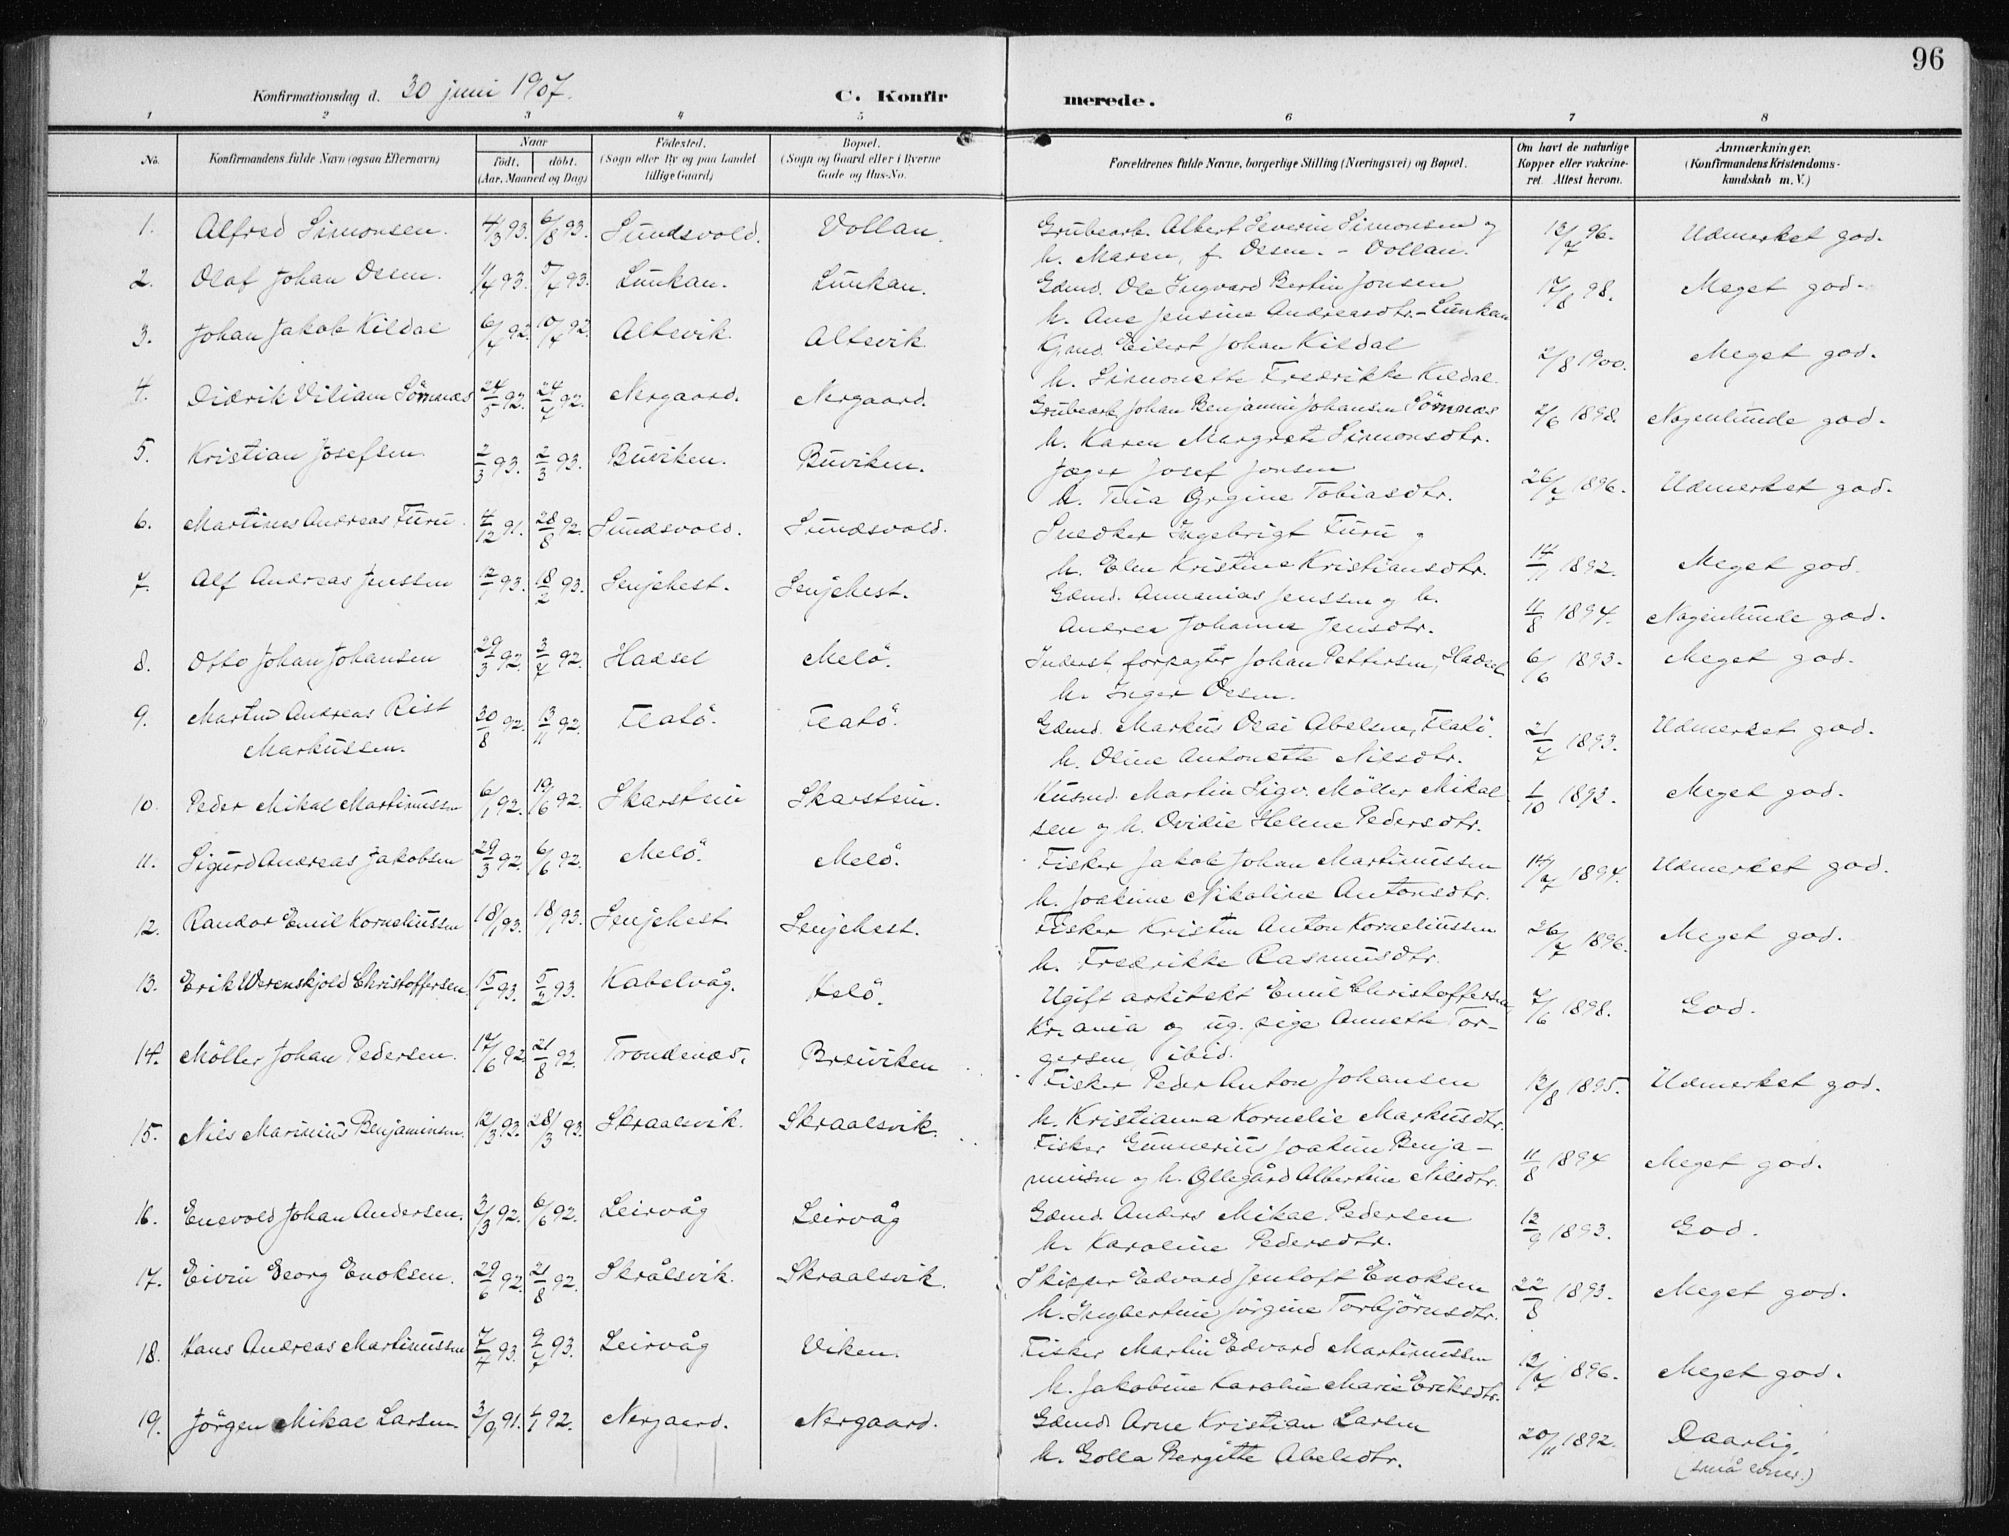 96
Konfirmationsdag d. 30 juni 1907.
C. Konfirmerede.
1 2 3 4 5 6 7 8
No. Konfirmandens fulde Navn (ogsaa Efternavn) Naar født. døbt. (Aar, Maaned og Dag) Fødested. (Sogn eller By og paa Landet tillige Gaard) Bopæl. (Sogn og Gaard eller i Byerne Gade og Hus-No. Forældrenes fulde Navne, borgerlige Stilling (Næringsvei) og Bopæl. Om havt de naturlige Kopper eller vakcineret. Attest herom. Anmærkninger. (Konfirmandens Kristendomskundskab m. V.)
1. Alfred Simonsen. 4/3 93. 6/8 93. Sundsvold. Vollan. Grubearb. Albert Severin Simonsen og 13/7 96. Udmerket god.
h. Maren, f. Olsen. - Vollan.
2. Olaf Johan Olsen. 4/4 93. 5/4 93. Lunkan. Lunkan. Gdmd. Ole Ingvard Bertin Jonsen 17/8 98. Meget god.
h. Ane Jensine Andreasdtr. - Lunkan
3. Johan Jakob Kildal 6/4 92. 10/4 92. Altevik. Altevik. Gmd. Eilert Johan Kildal 2/8 1900. Meget god.
h. Simonette Fredrikke Kildal.
4. Didrik Viliam Sömnæs 24/5 92. 24/7 92. Nergaard. Nergaard. Grubearb. Johan Benjamin Johansen Sömnæs 2/6 1898. Nogenlunde god.
h. Karen Margrete Simonsdtr.
5. Kristian Josefsen 2/3 93. 2/3 93. Buviken. Buviken. Jæger Josef Jonsen 26/7 1896. Udmerket god.
h. Tina Ørgine Tobiasdtr.
6. Martines Andreas Furu. 4/12 91. 28/8 92. Sundsvold. Sundsvold. Snedker Ingebrigt Furu og 14/11 1892. Meget god.
h. Elen Kristine Kristiansdtr.
7. Alf Andreas Jenssen 12/1 93. 18/2 93. Senjehest. Senjehest. Gdmd. Annanias Jenssen og h. 11/8 1894. Nogenlunde god.
Andrea Johanne Jensdtr.
8. Otto Johan Johansen 29/3 92. 3/7 92. Hadsel Melö. Inderst, forpagter Johan Pettersen, Hadsel 6/6 1893. Meget god.
h. Inger Olsen.
9. Martin Andreas Rist 30/8 92. 13/11 92. Flatö. Flatö. Gdmd. Markus Olai Abelsen, Flatö. 21/7 1893. Udmerket god.
Markussen. h. Oline Antonette Nilsdtr.
10. Peder Mikal Martinussen 6/1 92. 19/6 92. Skarstein Skarstein. Husmd. Martin Sigv. Möller Mikal- 1/10 1893. Meget god.
sen og h. Ovidie Helene Pedersdtr.
11. Sigurd Andreas Jakobsen 29/3 92. 6/6 92. Melö. Melö. Fisker Jakob Johan Martinussen 14/7 1894. Udmerket god.
h. Joakine Nikoline Antonsdtr.
12. Randor Emil Korneliussen 18/1 93. 18/1 93. Senjehest Senjehest. Fisker Kristen Anton Korneliussen 26/7 1896. Meget god.
h. Fredrikke Rasmusdtr.
13. Erik Werenskjold Christoffersen. 15/1 93. 5/2 93. Kabelvåg. Helö. Ugift arkitekt Emil Christoffersen, 7/6 1898. God.
Kr.ania og ug. pige Annette Tor-
gersen, ibid.
14. Möller Johan Pedersen. 17/6 92. 21/8 92. Trondenæs. Breiviken Fisker Peder Anton Johansen 13/8 1895. Udmerket god.
h. Kristianna Kornelie Markusdtr.
15. Nils Marinius Benjaminsen. 12/3 93. 28/3 93. Skraalsvik. Skraalsvik. Fisker Gunnerius Joakim Benja- 11/8 1894 Meget god.
minsen og h. Ollegård Albertine Nilsdtr.
16. Enevold Johan Andersen. 3/3 92. 6/6 92. Leirvåg Leirvåg Gdmd. Anders Mikal Pedersen 12/9 1893. God.
h. Karoline Pedersdtr.
17. Eivin Georg Enoksen. 29/6 92. 21/8 92. Skrålsvik. Skraalsvik. Skipper Edvard Jentoft Enoksen 22/8 1893. Meget god.
h. Ingbertine Jörgine Torbjörnsdtr.
18. Hans Andreas Martinussen 7/4 93. 9/7 93. Leirvåg Viken. Fisker Martin Edvard Martinussen 12/7 1896. Meget god.
h. Jakobine Karoline Marie Eriksdtr.
19. Jörgen Mikal Larsen. 3/9 91. 1/1 92. Nergaard. Nergaard. Gdmd. Arne Kristian Larsen 20/11 1892. Daarlig.
h. Golla Bergitte Abelsdtr. (små evner.)